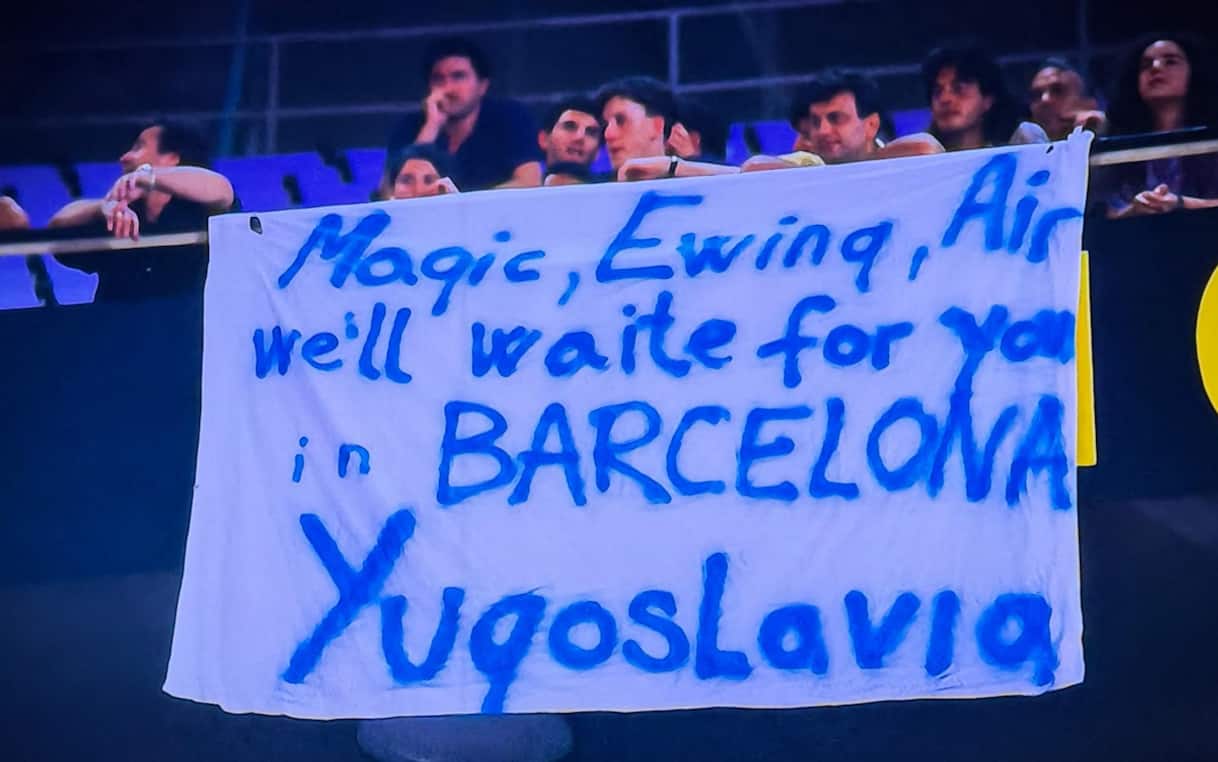 Magic, Ewing, Air
we'll waite for you
in BARCELONA
Yugoslavia